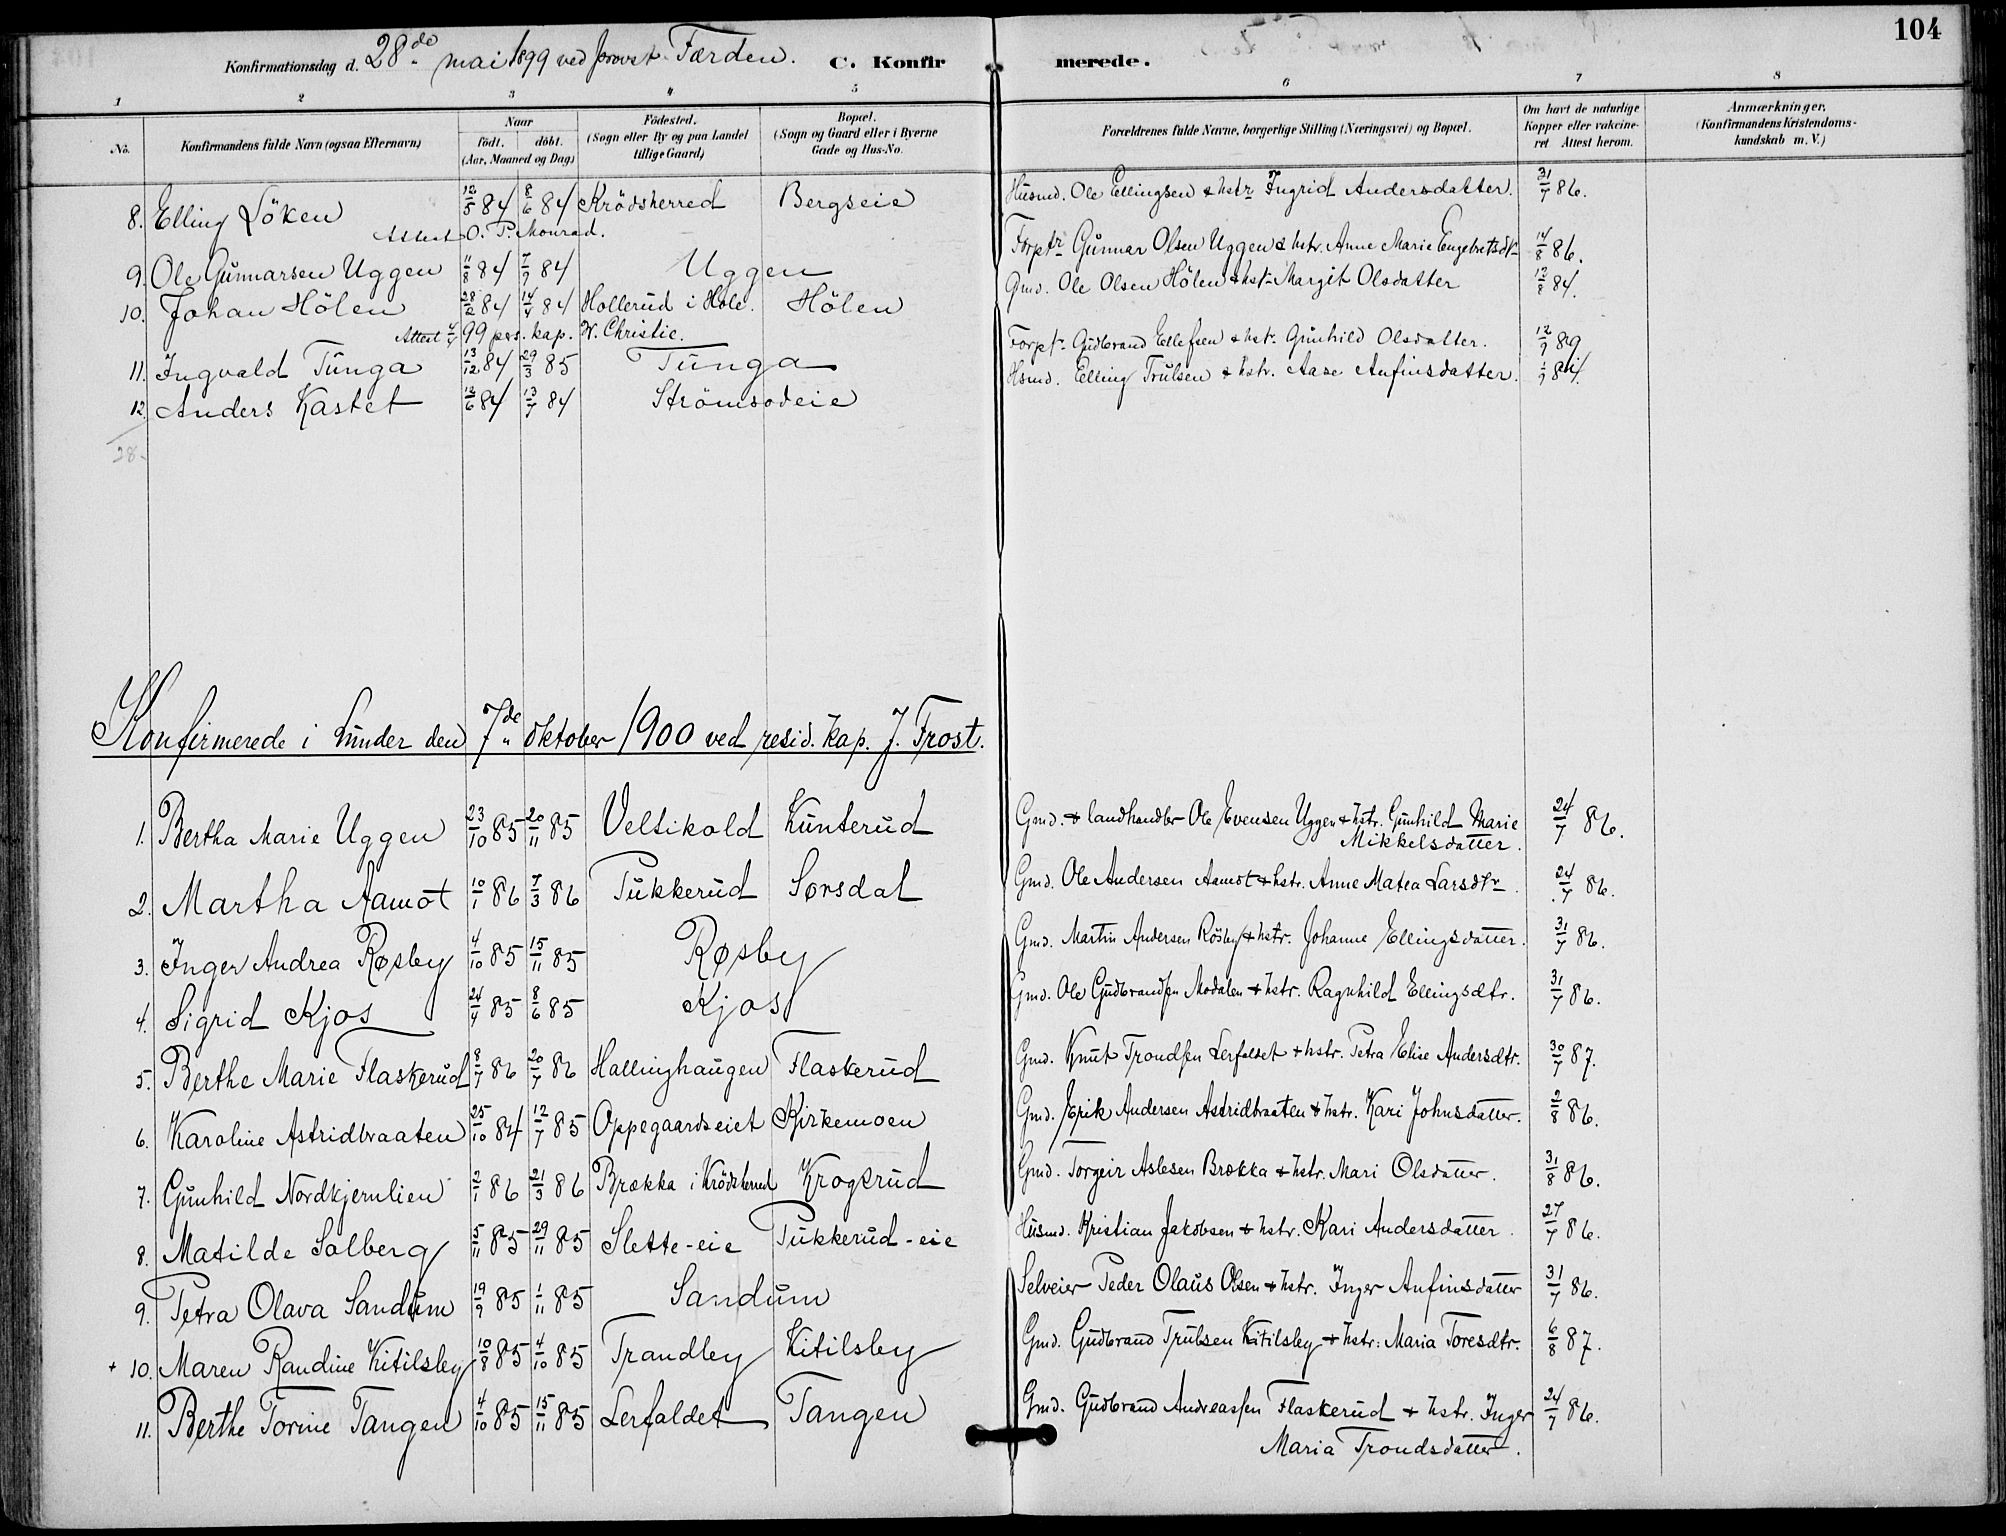 104
Konfirmationsdag d. 28de mai 1899 ved provst Færden. C. Konfirmerede.
1 2 3 4 5 6 7 8
No. Konfirmandens fulde Navn (ogsaa Efternavn) Naar födt. döbt. (Aar, Maaned og Dag) Födested. (Sogn eller By og paa Landet tillige Gaard) Bopæl. (Sogn og Gaard eller i Byerne Gade og Hus-No. Forældrenes fulde Navne, borgerlige Stilling (Næringsvei) og Bopæl. Om havt de naturlige Kopper eller vakcineret. Attest herom. Anmærkninger, (Konfirmandens Kristendomskundskab m. V.)
8. Elling Löken 12/5 84 8/6 84 Krödsherred Bergseie Husmd. Ole Ellingsen & hstr Ingrid Andersdatter. 31/7 86.
Attest O. P. Monrad.
9. Ole Gunnarsen Uggen 11/8 84 7/9 84 Uggen Forptr Gunnar Olsen Uggen & hstr. Anne Marie Engebretsdtr 14/8 86.
10. Johan Hölen 28/2 84 14/4 84 Hollerud i Hole. Hölen Gmd. Ole Olsen Hölen & hstr Margit Olsdatter 12/8 84.
Attest 4/4 99 pers. kap. W. Christie.
11. Ingvald Tunga 13/12 84 29/3 85 Tunga Forptr Gudbrand Ellefsen & hstr. Gunhild Olsdatter. 12/9 89
12. Anders Kastet 12/6 84 13/7 84 Strömsodeie Hsmd. Elling Trulsen & hstr. Aase Anfinsdatter. 84.
28.
Konfirmerede i Lunder den 7de oktober 1900 ved resid. kap. J. Frost.
1. Bertha Marie Uggen 23/10 85 20/11 85 Veltikold Kunterud Gmd. & landhandler Ole Evensen Uggen & hstr. Gunhild Marie Mikkelsdatter. 24/7 86.
2. Martha Aamot 10/1 86 7/3 86 Tukkerud Sørsdal Gmd. Ole Andersen Aamot & hstr. Anne Matea Larsdtr. 24/7 86.
3. Inger Andrea Røsby 4/10 85 15/11 85 Røsby Gmd. Martin Andersen Rösby & hstr. Johanne Ellingsdatter. 31/7 86.
4. Sigrid Kjos 24/4 85 8/6 85 Kjos Gmd. Ole Gudbrandsen Modalen & hstr. Ragnhild Ellingsdtr. 31/7 86.
5. Berthe Marie Flaskerud 8/7 86 20/7 86 Hallinghaugen Flaskerud Gmd. Knut Trondsen Lerfaldet & hstr. Petra Elise Andersdtr. 30/7 87.
6. Karoline Astridbraaten 25/10 84 12/7 85 Oppegaardseiet Kjirkemoen Gmd. Erik Andersen Astridbraaten & hstr. Kari Johnsdatter. 2/8 86.
7. Gunhild Nordkjernlien 2/1 86 21/3 86 Brække i Krödsherred Krogsrud Gmd. Torgeir Aslesen Brækka & hstr. Mari Olsdatter. 31/8 86.
8. Matilde Solberg 5/11 85 29/11 85 Slette-eie Tukkerud-eie Husmd. Kristian Jakobsen & hstr. Kari Andersdatter. 27/7 86.
9. Petra Olava Sandum 19/9 85 1/11 85 Sandum Selveier Peder Olaus Olsen & hstr. Inger Anfinsdatter 31/7 86.
+ 10. Maren Randine Kitilsby 10/8 85 4/10 85 Trandby Kitilsby Gmd. Gudbrand Trulsen Kitilsby & hstr: Maria Toresdtr. 6/8 87.
11. Berthe Torine Tangen 4/10 85 15/11 85 Lerfaldet Tangen Gmd. Gudbrand Andreassen Flaskerud & hstr. Inger Maria Trondsdatter. 24/7 86.